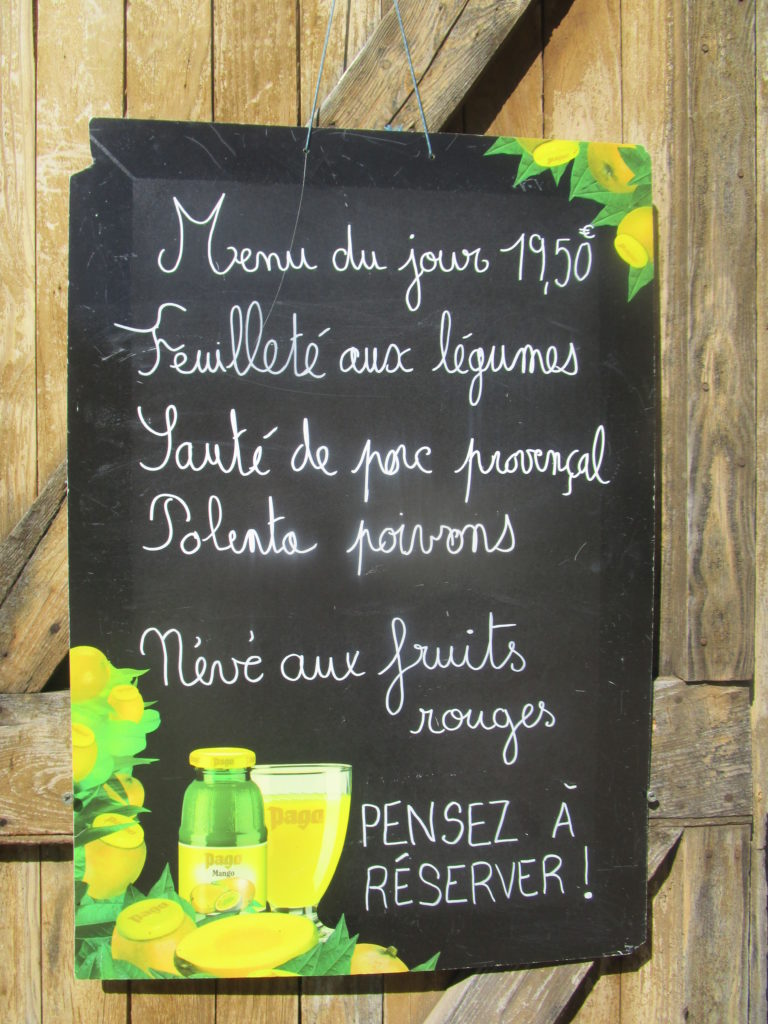 Menu du jour 19,50€
Feuilleté aux légumes
Sauté de porc provençal
Polenta poivrons
Névé aux fruits
rouges
PENSEZ À
RÉSERVER !
Pago
Pago
Pago
Mango
Pago